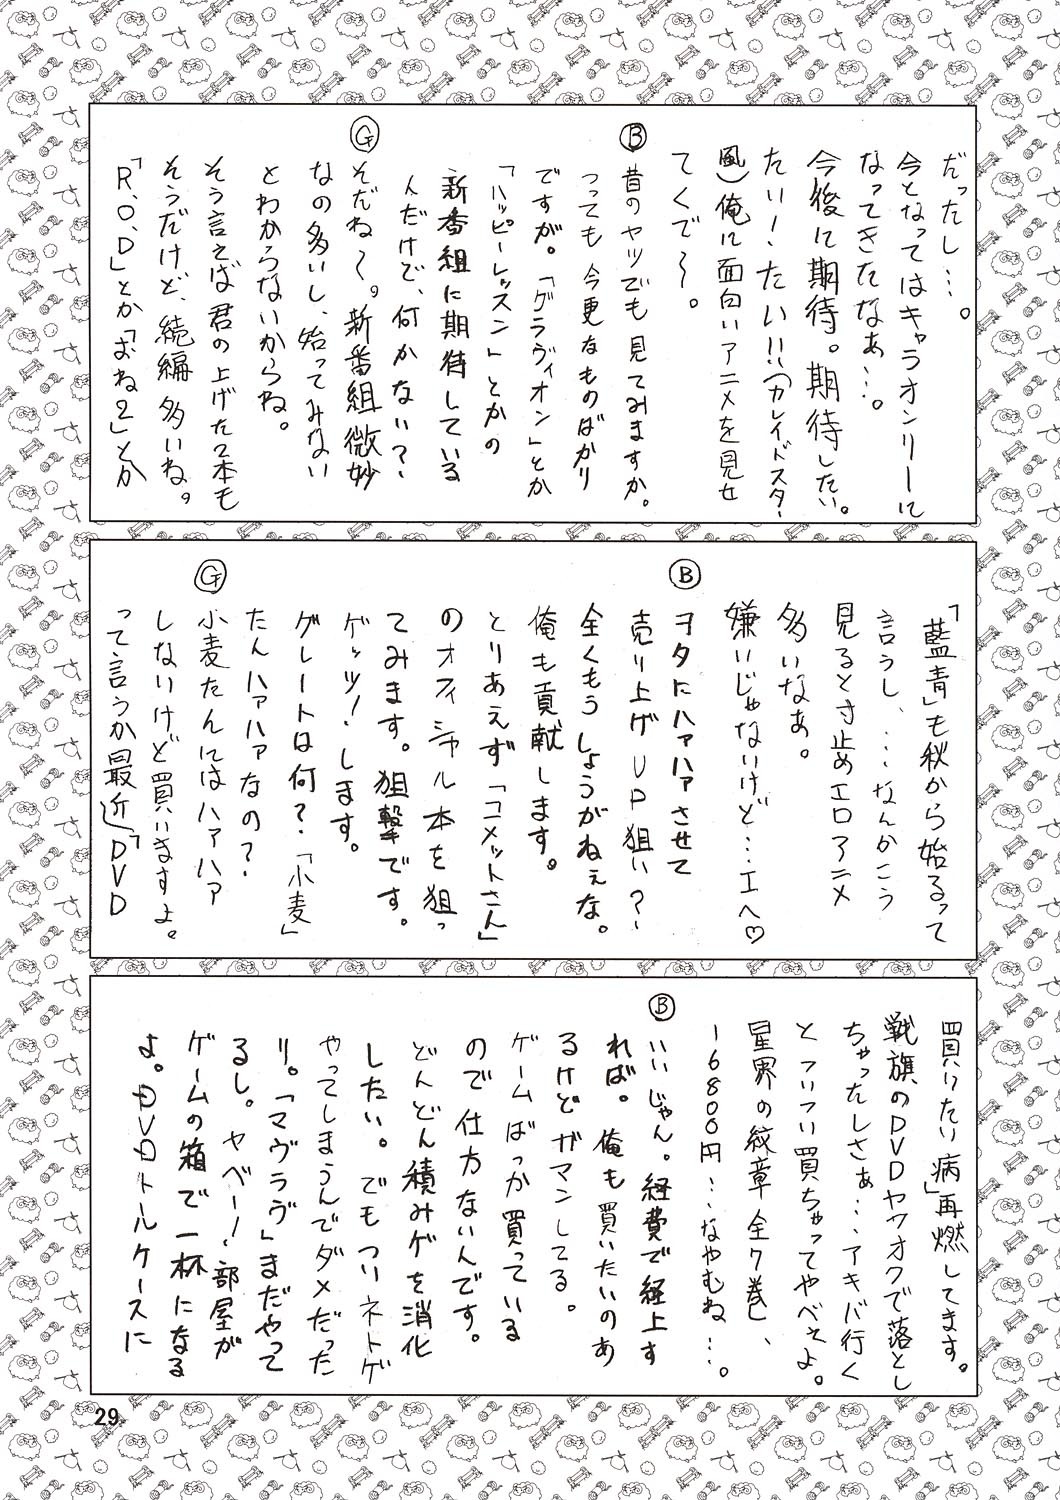 だったし…。
今となってはキャラオンリーに
なってきたなぁ…。
今後に期待。期待したい。
たい！たい!!（カレイドスター
風）俺に面白いアニメを見せ
てくで～。
Ⓑ
昔のヤツでも見てみますか。
つっても今更なものばかり
ですが。「グラヴィオン」とか
「ハッピーレッスン」とかの
新番組に期待している
んだけで、何かない？
Ⓖ
そだね～。新番組微妙
なの多いし、始ってみない
とわからないからね。
そう言えば君の上げた2本も
そうだけど、続編多いね。
「R.O.D」とか「おね2」とか
「藍青」も秋から始るって
言うし、…なんかこう
見ると寸止めエロアニメ
多いなぁ。
嫌いじゃないけど…エヘ♡
Ⓑ
ヲタにハァハァさせて
売り上げUP狙い？
全くもうしょうがねぇな。
俺も貢献します。
とりあえず「コメットさん」
のオフィシャル本を狙っ
てみます。狙撃です。
ゲッツ！します。
グレートは何？「小麦」
たんハァハァなの？
Ⓖ
小麦たんにはハァハァ
しないけど買いますよ。
って言うか最近「DVD
買いたい病」再燃してます。
戦旗のDVDヤフオクで落とし
ちゃったしさぁ…アキバ行く
とついつい買ちゃってやべぇよ。
星界の紋章全7巻し、
16800円…なやむね…。
Ⓑ
いいじゃん。経費で経上す
れば。俺も買いたいのあ
るけどガマンしてる。
ゲームばっか買っている
ので仕方ないんです。
どんどん積みゲを消化
したい。でもついネトゲ
やってしまうんでダメだった
り。「マヴラヴ」まだやって
るし。ヤベー！部屋が
ゲームの箱で一杯になる
よ。DVDトルケースに
29